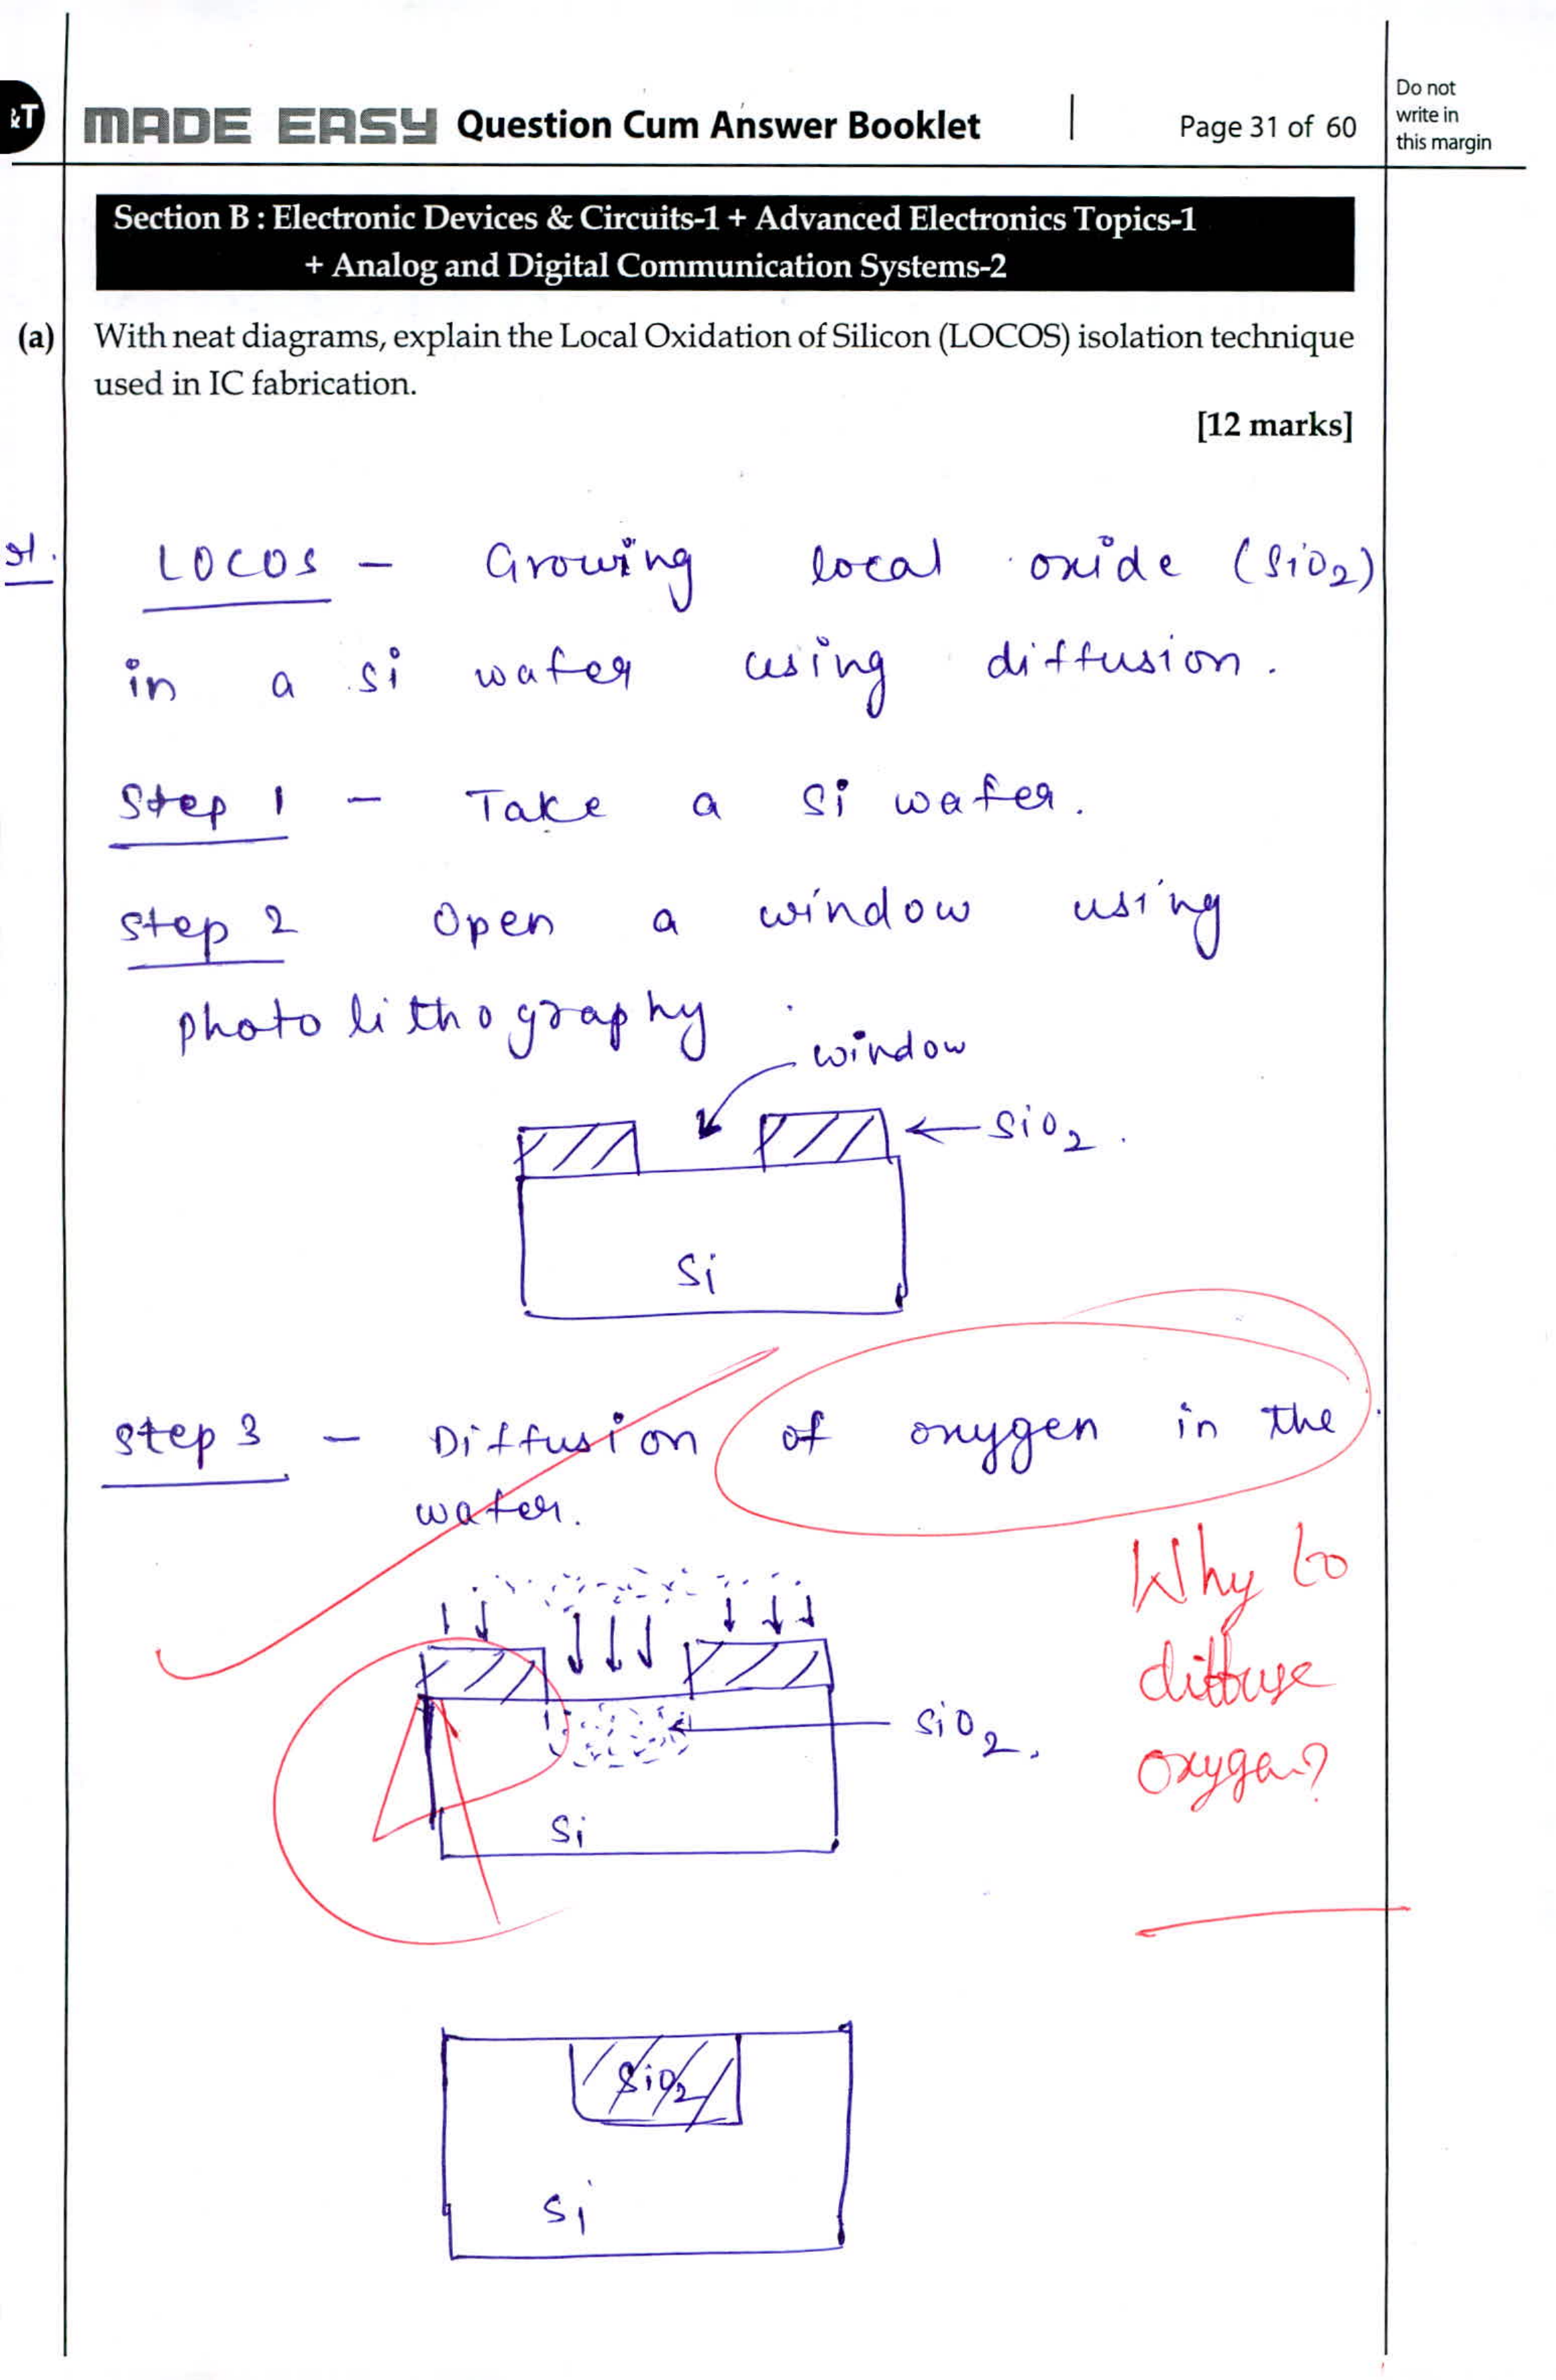 &T
MADE EASY Question Cum Answer Booklet
Page 31 of 60
Do not
write in
this margin
Section B : Electronic Devices & Circuits-1 + Advanced Electronics Topics-1
+ Analog and Digital Communication Systems-2
(a) With neat diagrams, explain the Local Oxidation of Silicon (LOCOS) isolation technique
used in IC fabrication.
[12 marks]
LOCOS - Growing local oxide (SiO2)
in a Si wafer using diffusion.
Step 1 - Take a Si wafer.
Step 2 Open a window using
photolithography
window
SiO2.
Si
Step 3 - Diffusion of oxygen in the
wafer.
Why to
diffuse
oxygen?
SiO2.
Si
SiO2
Si